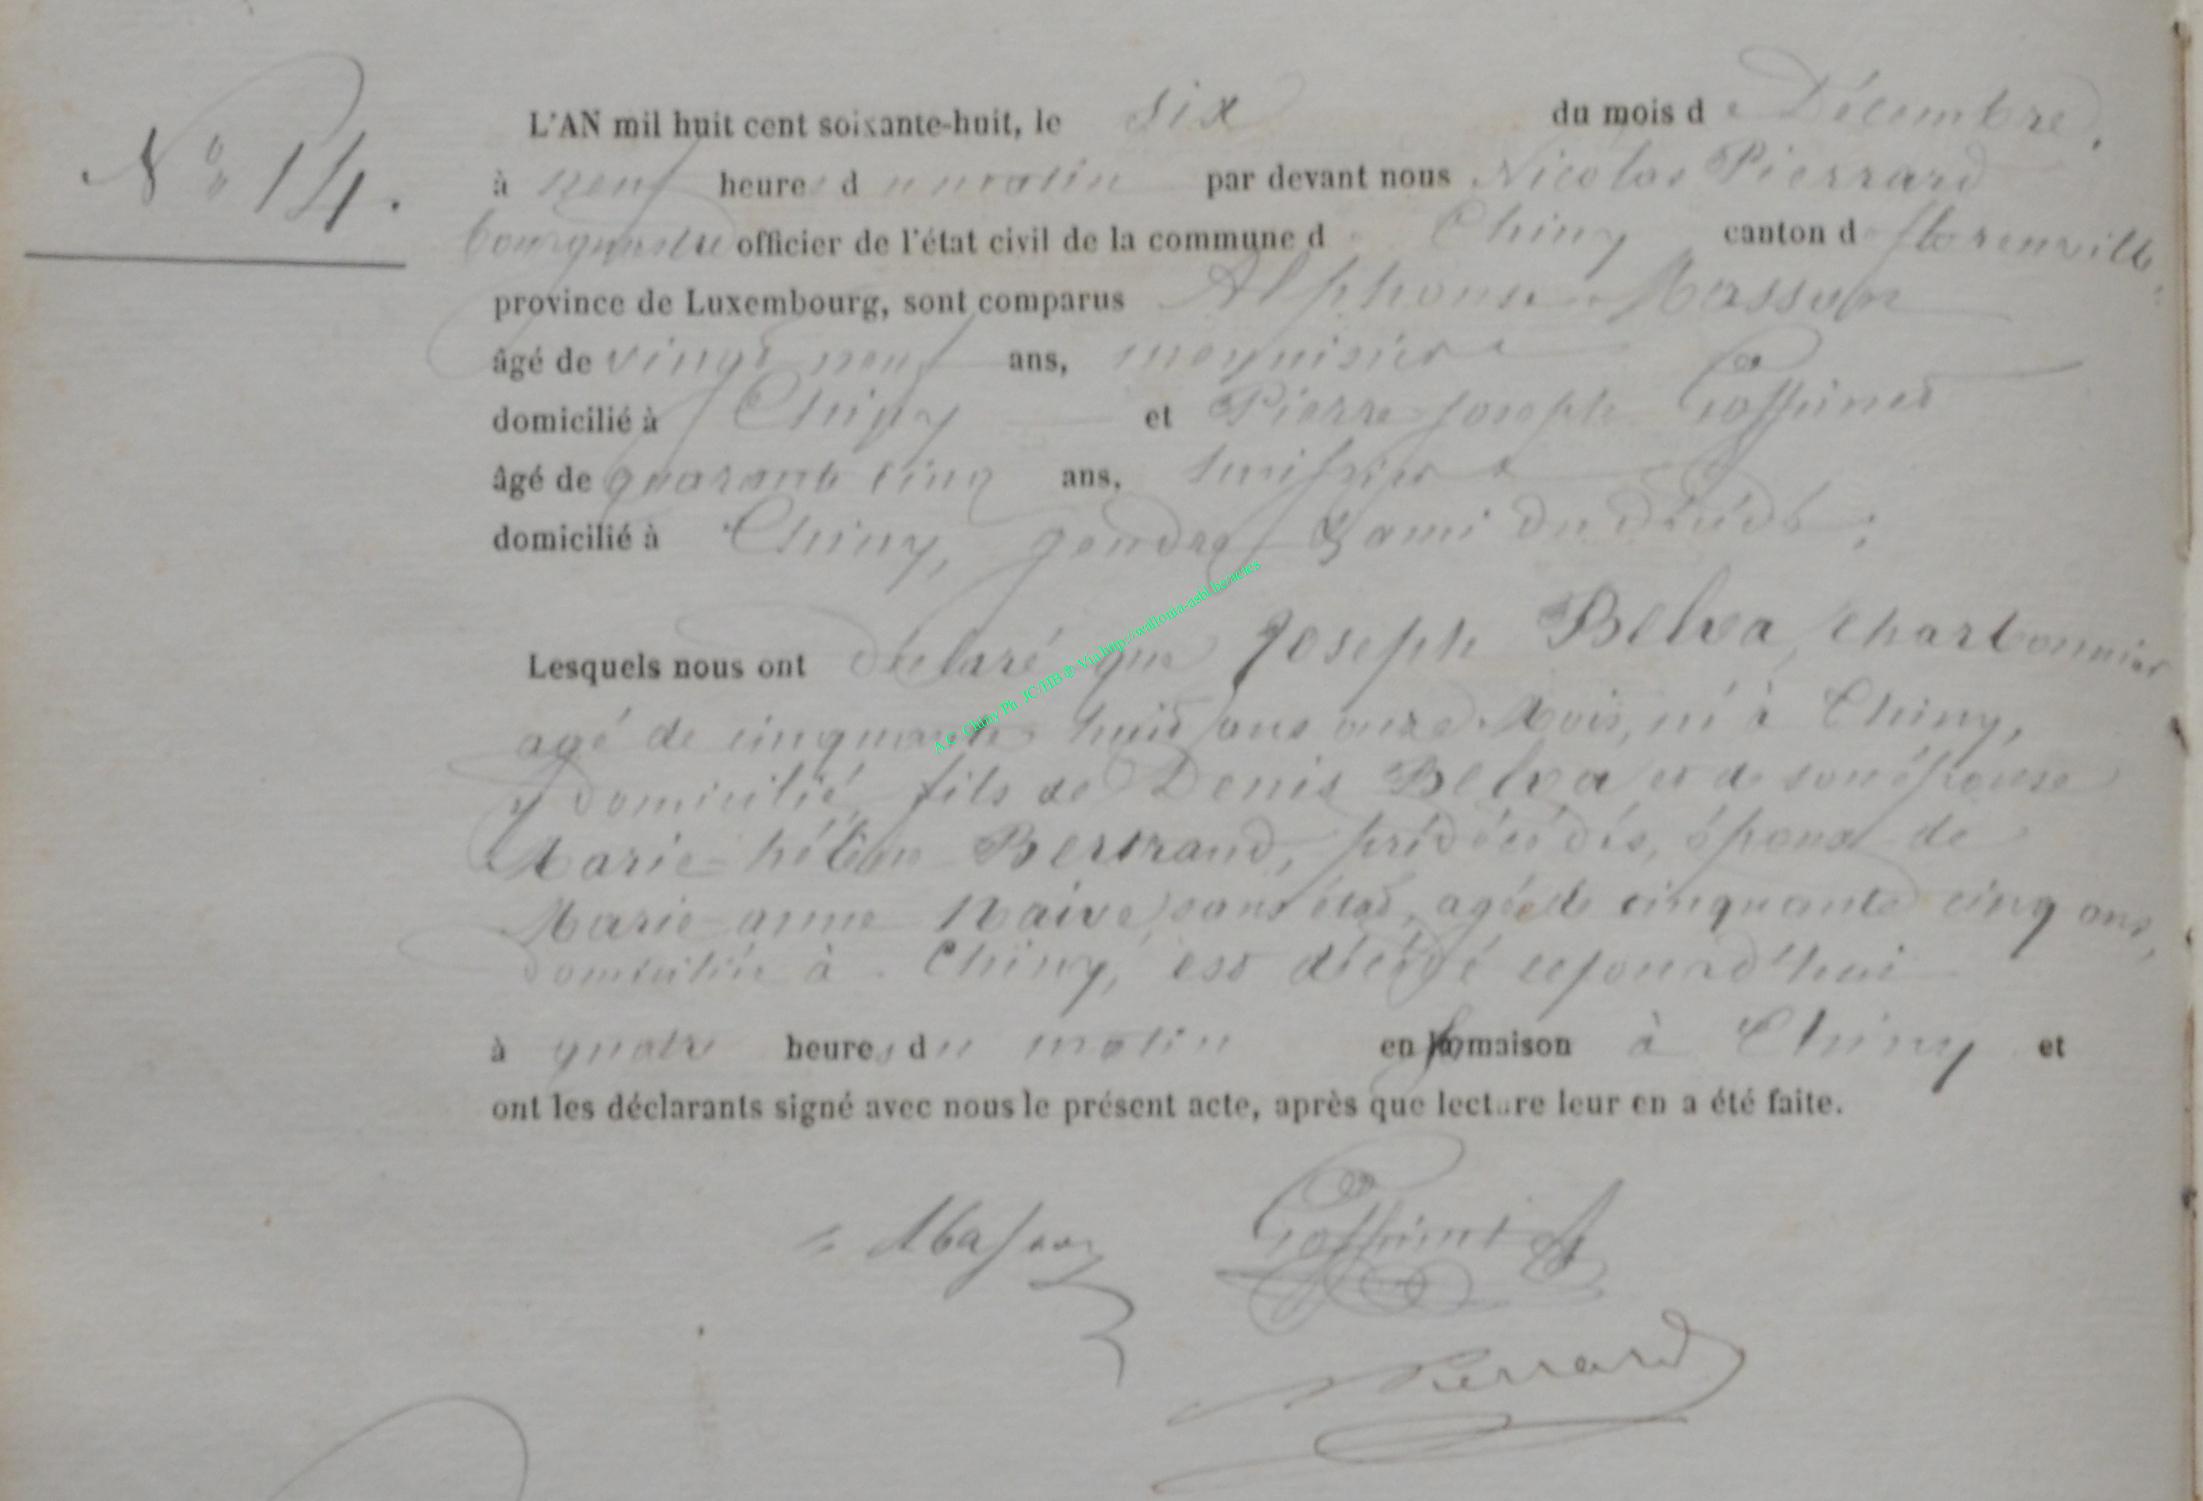 N° 14.
L'AN mil huit cent soixante-huit, le six du mois de Décembre,
à neuf heures du matin par devant nous Nicolas Pierrard
bourgmestre officier de l'état civil de la commune de Chiny canton de florenville,
province de Luxembourg, sont comparus Alphonse Masson
âgé de vingt neuf ans, menuisier
domicilié à Chiny et Pierre Joseph Goffinet
âgé de quarante cinq ans,
domicilié à Chiny, gendre & ami du décédé;
Lesquels nous ont déclaré que Joseph Belva, charbonnier
agé de cinquante huit ans onze Mois, né à Chiny,
y domicilié, fils de Denis Belva et de son épouse
Marie-hélène Bertrand, prédécédés, époux de
Marie-anne Naive, sans état, agée de cinquante cinq ans,
domiciliée à Chiny, est décédé cejourd'hui
à quatre heures du matin en sa maison à Chiny et
ont les déclarants signé avec nous le présent acte, après que lecture leur en a été faite.
A.C Chiny Ph JC/HB @ Via http://wallonia-asbl.be/actes
Masson Goffinet
Pierrard